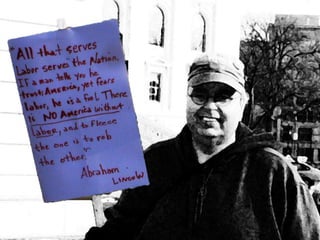 "All that serves
Labor serves the Nation.
If a man tells you he
trusts America, yet fears
labor, he is a fool. There
is NO America without
labor, and to fleece
the one is to rob
the other."
Abraham
LINCOLN